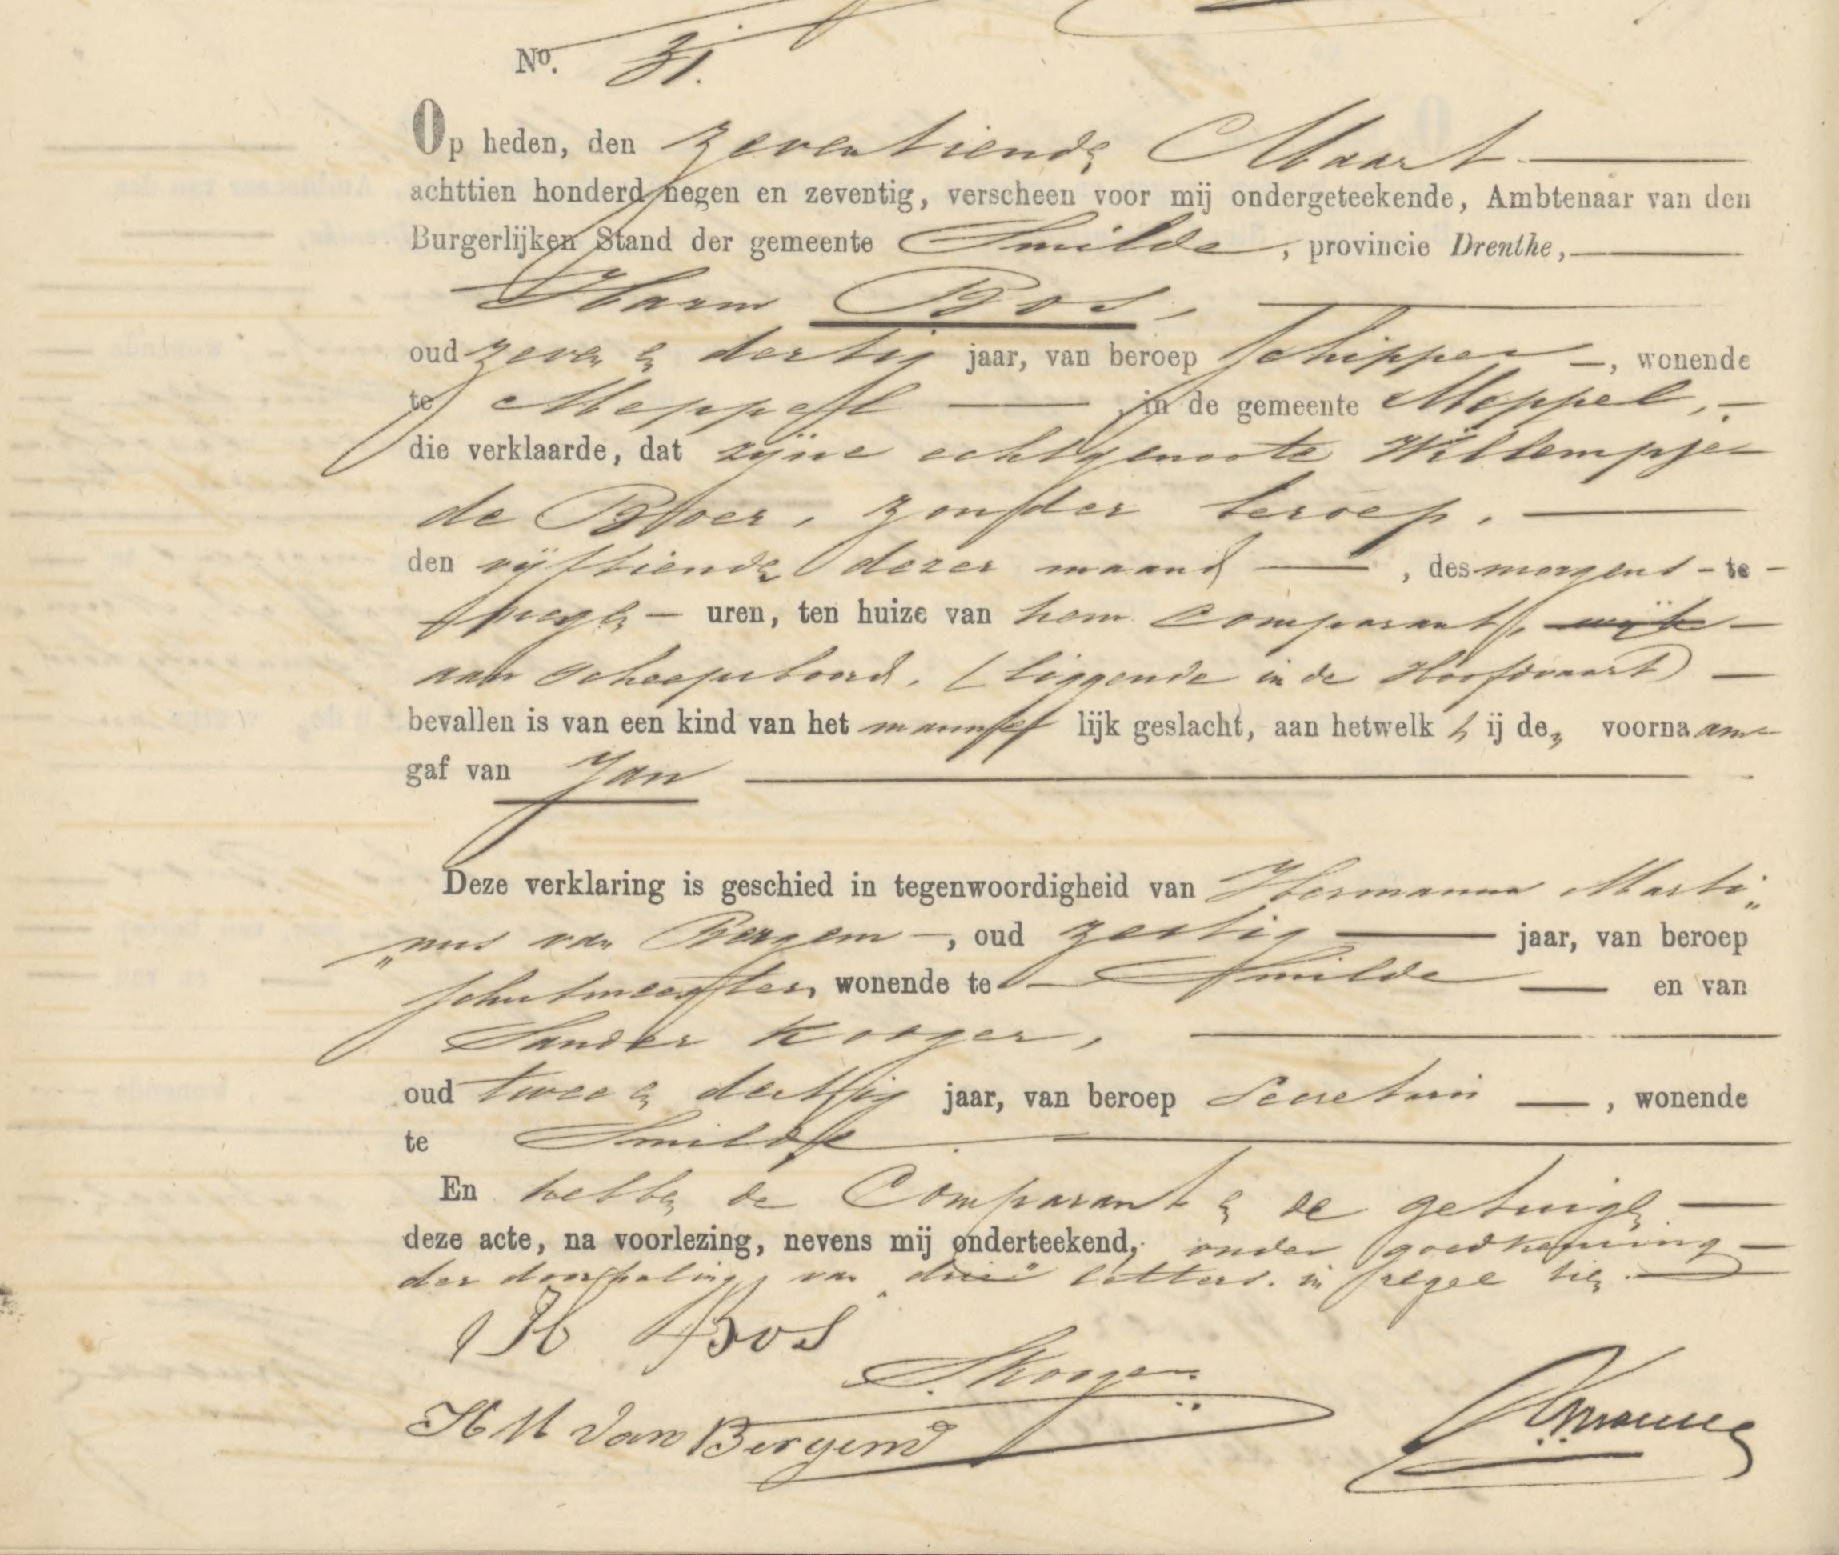 No. 31.
Op heden, den zeventienden Maart
achttien honderd negen en zeventig, verscheen voor mij ondergeteekende, Ambtenaar van den
Burgerlijken Stand der gemeente Smilde, provincie Drenthe,
Harm Bos,
oud zeven en dertig jaar, van beroep schipper, wonende
te Meppel, in de gemeente Meppel,
die verklaarde, dat zijne echtgenoote Willempje
de Boer, zonder beroep,
den vijftienden dezer maand, des morgens te
negen uren, ten huize van hem comparant,
aan scheepsboord, (liggende in de Hoofdvaart)
bevallen is van een kind van het mannelijk geslacht, aan hetwelk hij den voornaam
gaf van Jan
Deze verklaring is geschied in tegenwoordigheid van Hermannus Marti"
"nus van Bergem, oud zestig jaar, van beroep
schutmeester, wonende te Smilde en van
Sander Kooger,
oud twee en dertig jaar, van beroep Secretaris, wonende
te Smilde.
En hebben de Comparant en de getuigen
deze acte, na voorlezing, nevens mij onderteekend, onder goedkeuring
der doorhaling van drie letters in regel tien.
H Bos
S Kooger
H M van Bergem